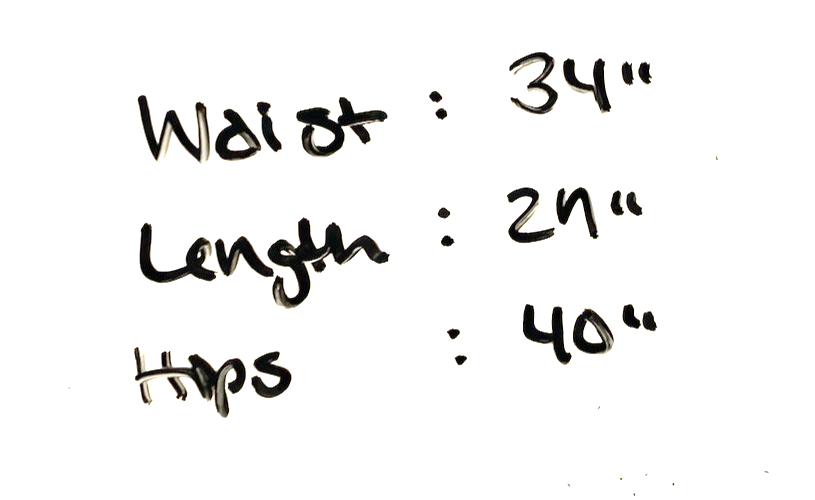 Waist : 34"
Length :
Hips : 40"